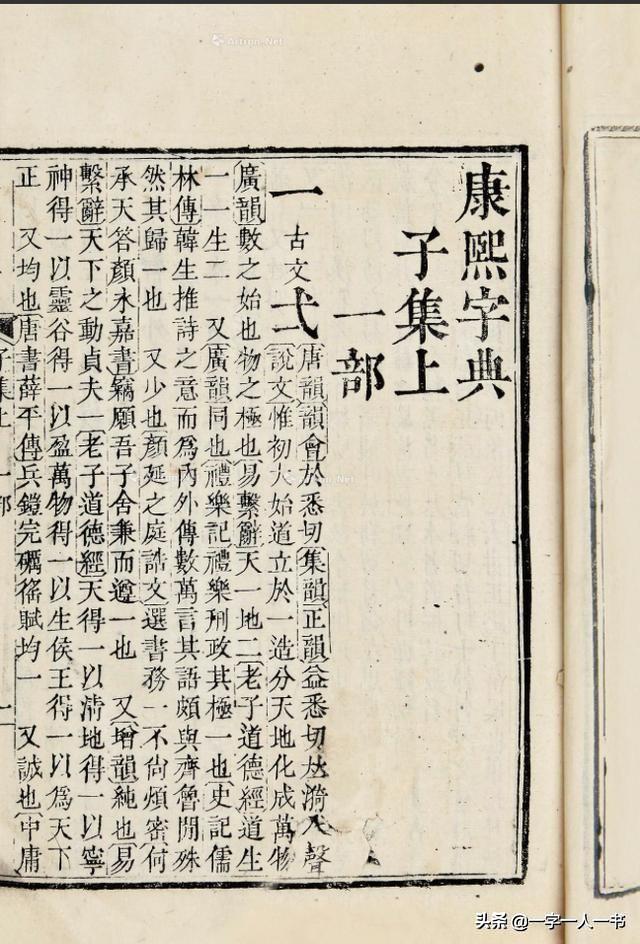 康熙字典
子集上
一部
一 古文弌
唐韻韻會於悉切集韻正韻益悉切𠀤漪入聲
說文惟初大始道立於一造分天地化成萬物
廣韻數之始也物之極也易繫辭天一地二老子道德經道生
一一生二 又廣韻同也禮樂記禮樂刑政其極一也史記儒
林傳韓生推詩之意而爲內外傳數萬言其語頗與齊魯閒殊
然其歸一也 又少也顏延之庭誥文選書務一不尚煩密何
承天答顏永嘉書竊願吾子舍兼而遵一也 又增韻純也易
繫辭天下之動貞夫一老子道德經天得一以淸地得一以寧
神得一以靈谷得一以盈萬物得一以生侯王得一以爲天下
正 又均也唐書薛平傳兵鎧完礪徭賦均一 又誠也中庸
子集上 一部 一
Artron.Net
头条 @一字一人一书